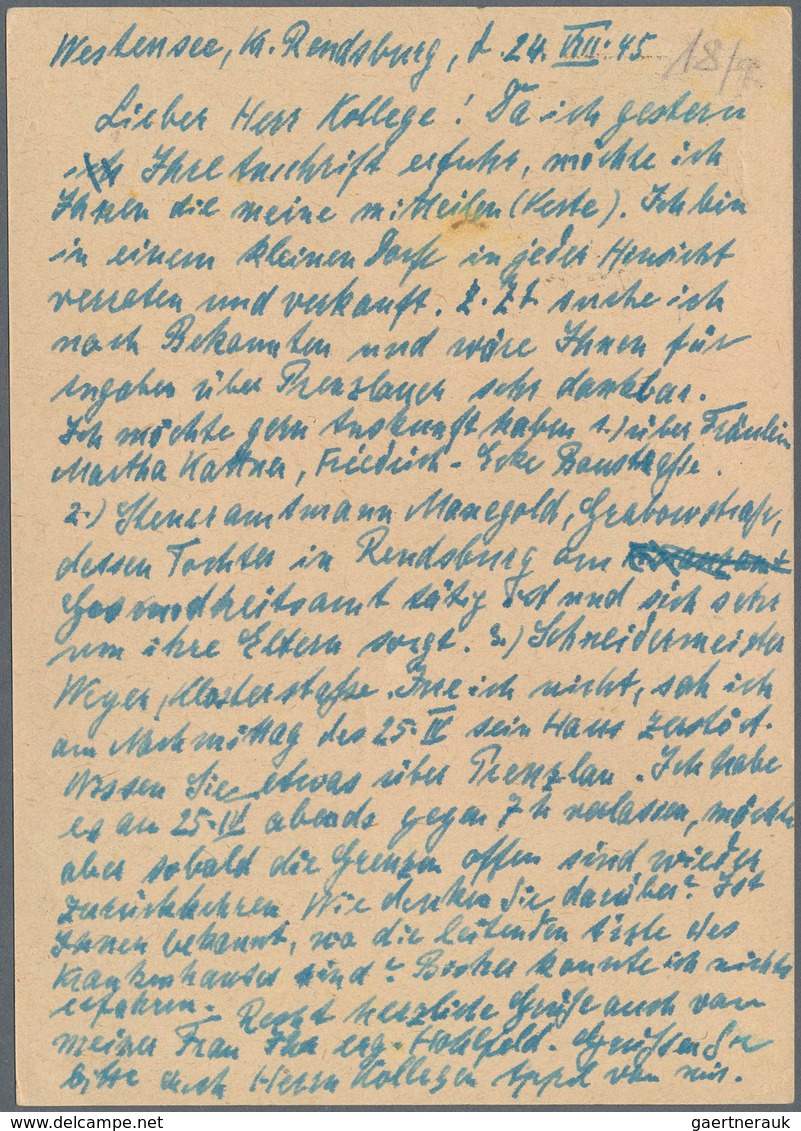 Westensee, Kr. Rendsburg, d. 24. VIII. 45
18/9.
Lieber Herr Kollege! Da ich gestern
Ihre Anschrift erfuhr, möchte ich
Ihnen die meine mitteilen (Karte). Ich bin
in einem kleinen Dorfe in jeder Hinsicht
verraten und verkauft. Z. Zt. suche ich
nach Bekannten und wäre Ihnen für
Angaben über Prenzlauer sehr dankbar.
Ich möchte gern Auskunft haben 1.) über Fräulein
Martha Kattner, Friedrich- Ecke Baustraße.
2.) Steueramtmann Manegold, Grabowstraße,
dessen Tochter in Rendsburg am
Gesundheitsamt tätig ist und sich sehr
um ihre Eltern sorgt. 3.) Schneidermeister
Weyer, Klosterstraße. Irre ich nicht, sah ich
am Nachmittag des 25. IV sein Haus zerstört.
Wissen Sie etwas über Prenzlau. Ich habe
es am 25. IV abends gegen 7 h verlassen, möchte
aber sobald die Grenzen offen sind wieder
zurückkehren. Wie denken Sie darüber? Ist
Ihnen bekannt, wo die leitenden Ärzte des
Krankenhauses sind? Bisher konnte ich nichts
erfahren. Recht herzliche Grüße auch von
meiner Frau Ihr erg. Hohlfeld. Grüßen Sie
bitte auch Herrn Kollegen von mir.
www.delcampe.net
gaertnerauk